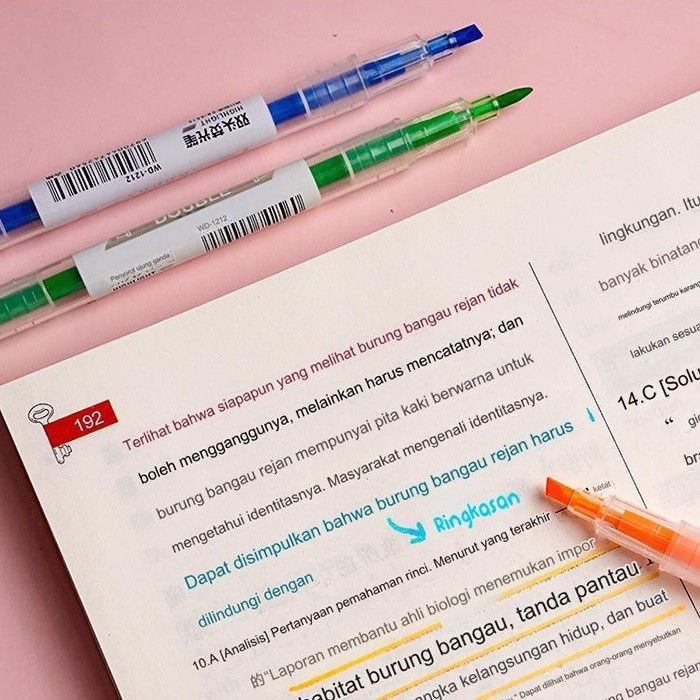 双头荧光笔
HIGHLIGHT
WD-1212
DOUBLE
WD-1212
Penyorot ujung ganda
192
Terlihat bahwa siapapun yang melihat burung bangau rejan tidak
boleh mengganggunya, melainkan harus mencatatnya; dan
burung bangau rejan mempunyai pita kaki berwarna untuk
mengetahui identitasnya. Masyarakat mengenali identitasnya.
Dapat disimpulkan bahwa burung bangau rejan harus
dilindungi dengan
Ringkasan
ketat.
10.A [Analisis] Pertanyaan pemahaman rinci. Menurut yang terakhir
的“Laporan membantu ahli biologi menemukan impor
habitat burung bangau, tanda pantau
angka kelangsungan hidup, dan buat
“Dapat dilihat bahwa orang-orang menyebutkan
lingkungan. Itu
banyak binatan
melindungi terumbu karang
lakukan sesua
14.C [Solu
“ gi
br